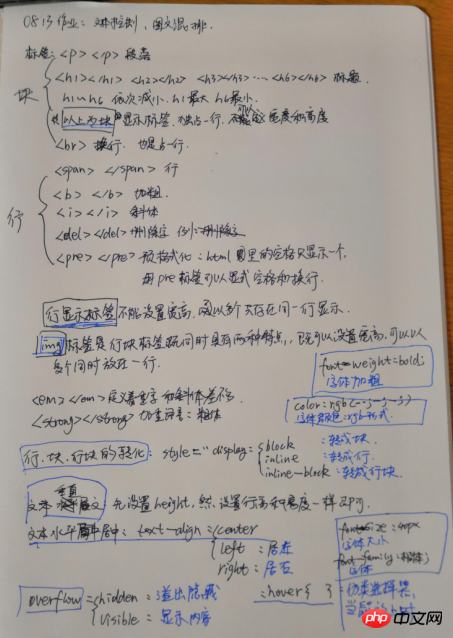 0813作业：文本控制、图文混排.
标签：<p></p> 段落
块 <h1></h1> <h2></h2> <h3></h3>…<h6></h6> 标题.
h1~h6 依次减小. h1最大 h6最小.
以上为块 显示标签. 独占一行. 宽度和高度
<br> 换行. 也是占一行.
行 <span> </span> 行
<b> </b> 加粗.
<i></i> 斜体
<del></del> 删除定 例:删除定
<pre></pre> 预格式化：html里的空格只显示一个.
用pre标签可以显式空格和换行.
行显示标签 不能设置宽高. 存在同一行显示.
img 标签是行块标签 既同时具有两种特点, 可以设置宽高, 可以
多个同时放在一行.
font-weight=bold;
字体加粗
<em></em> 定义着重字 和斜体差不多
<strong></strong> 加重语气：粗体
color:rgb(--,--,--)
字体颜色:rgb形式.
行、块、行块的转化： style="display: block :转成块.
inline :转成行.
inline-block :转成行块.
文本垂直 先设置height, 然 设置行高和高度一样即可.
文本水平居中: text-align: center
left :居左
right :居右
font-size:40px
字体大小
font-family:
字体
overflow = hidden :溢出隐藏
visible :显示内容
:hover{ }
:伪类选择器.